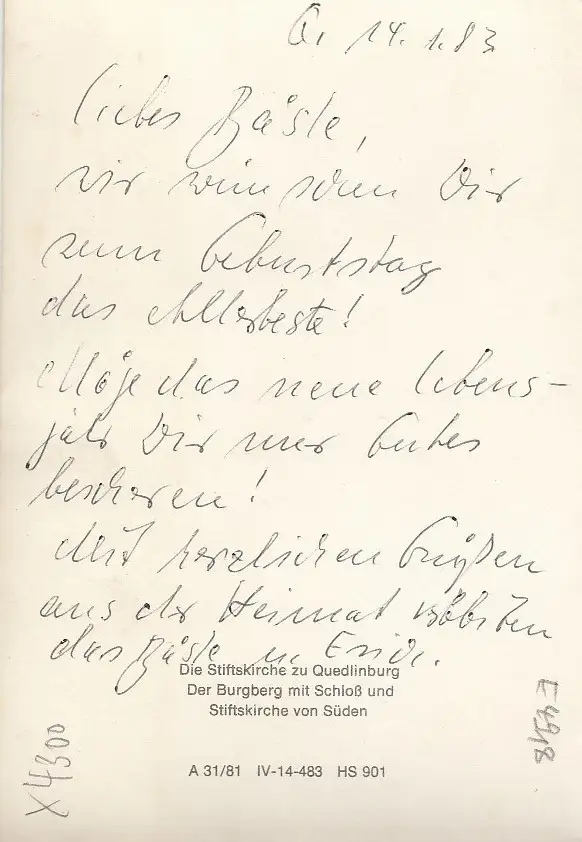 Q. 14.1.83
Liebes Bäsle,
wir wünschen Dir
zum Geburtstag
das Allerbeste!
Möge das neue Lebens-
jahr Dir nur Gutes
bescheren!
Mit herzlichen Grüßen
aus der Heimat
das Bäsle u. Erich.
Die Stiftskirche zu Quedlinburg
Der Burgberg mit Schloß und
Stiftskirche von Süden
A 31/81 IV-14-483 HS 901
X4300